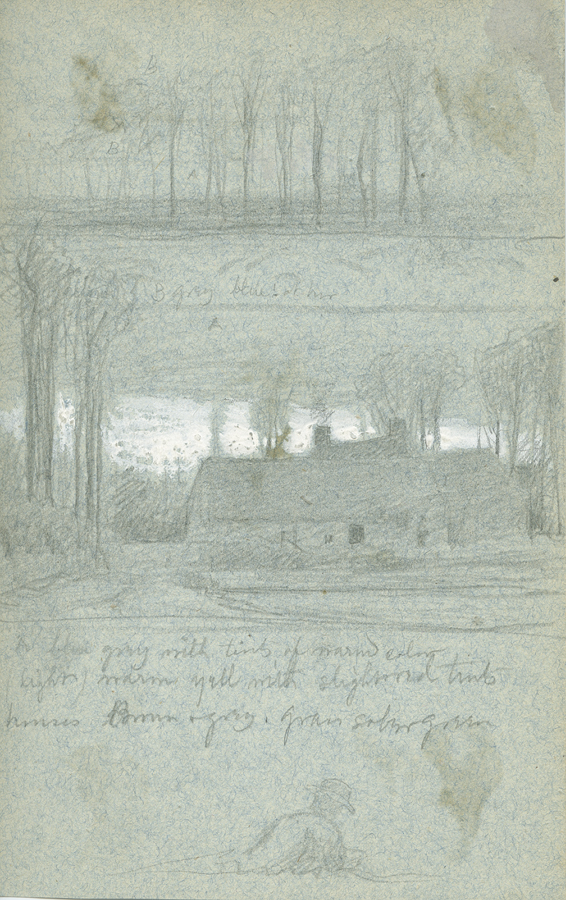 B
B
B grey blue
A
A blue grey with tints of warm color
lights) warm yell with slight red tints
houses Brown & grey. Grass sober green